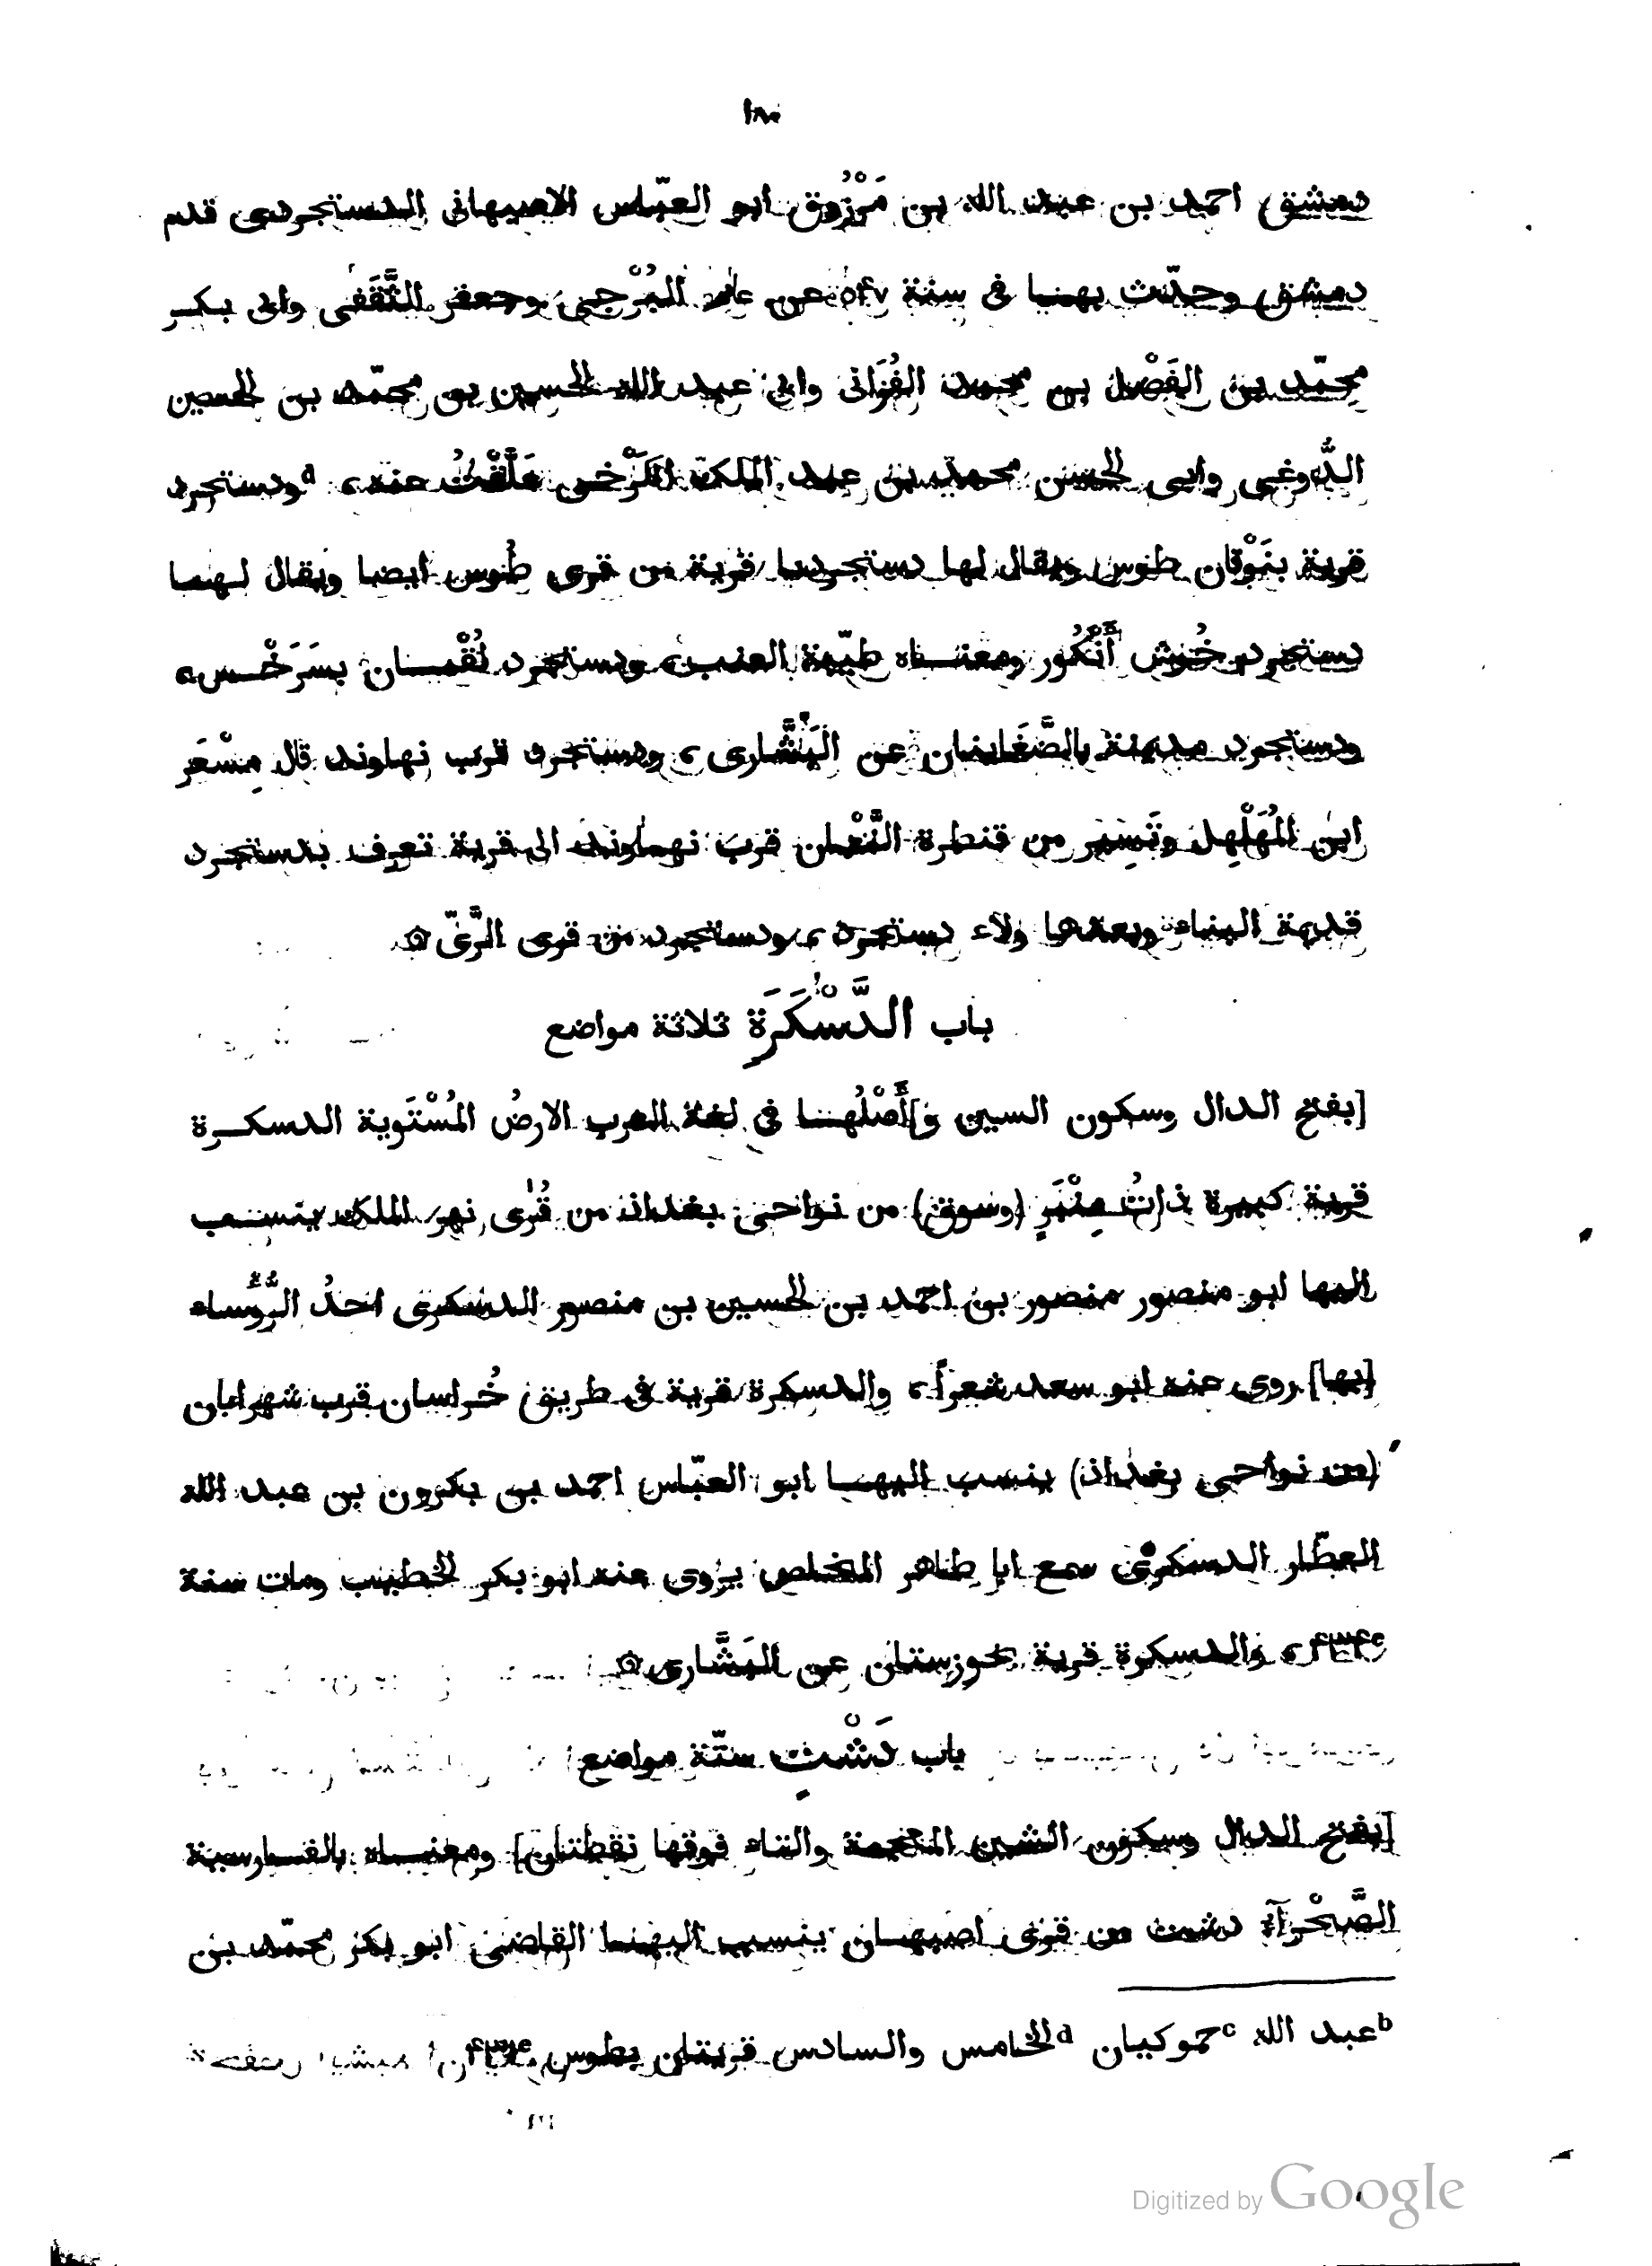 ١٨٠
دمشق احمد بن عبد الله بن مَرْزُوق ابو العبّاس الاصبهانى الدستجردى قدم
دمشق وحدّث بهـا فى سنة عن البُرْجى وجعفر الثَّقَفى وابى بكـر
محمّد بن الفَضْل بن محمد الفُزَانى وابى عبد الله الحسين بن محمّد بن الحسين
وابى الحسن محمد بن عبد الملك الكَرْخى عَلَّقْتُ عنه، ᵈودستجرد
قرية بنَوْقان طوس ويقال لها دستجرد قرية من قرى طُوس ايضا ويقال لـهـا
دستجرد خُوش أَنْكُور ومعنـاه طيّبة العنب، ودستجرد لُقْمـان بسَرَخْـس،
ودستجرد مدينة بالصَّغَانيان عن البَشَّارى، ودستجرد قرب نهاوند قال مِسْعَر
ابن المُهَلْهِل وتَسِير من قنطرة النُّعْمان قرب نهاوند الى قرية تعرف بدستجرد
قديمة البناء وبعدها ولاء دستجرد، ودستجرد من قرى الرَّىّ ۞
باب الدَّسْكَرَةِ ثلاثة مواضع
[بفتح الدال وسكون السين و]أَصْلُهـا فى لغة العرب الارضُ المُسْتَوية الدسكـرة
قرية كبيرة ذاتُ مِنْبَرٍ (وسوق) من نواحى بغداد من قُرَى نهر الملك ينسـب
اليها ابو منصور منصور بن احمد بن الحسين بن منصور الدسكرى احدُ الرُّؤُساء
[بها] روى عنه ابو سعد شعراً، والدسكرة قرية فى طريق خُراسان قرب شهرابان
(من نواحى بغداد) ينسب اليهـا ابو العبّاس احمد بن بكرون بن عبد الله
العطّار الدسكرى سمع ابا طاهر المخلص يروى عنه ابو بكر الخطيب ومات سنة
٤٣٤ᵉ، والدسكرة قرية بخوزستان عن البَشَّارى ۞
باب دَشْتٍ ستّة مواضع
[بفتح الدال وسكون الشين المعجمة والتاء فوقها نقطتان] ومعنـاه بالفـارسية
الصَّحْرآء دشت من قرى اصبهـان ينسب اليهـا القاضى ابو بكر محمّد بن
ᵇعبد الله ᶜحموكيان ᵈالخامس والسادس قريتان بطوس
Digitized by Google